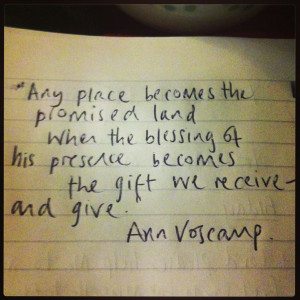 "Any place becomes the
promised land
when the blessing of
his presence becomes
the gift we receive-
and give.
Ann Voscamp.